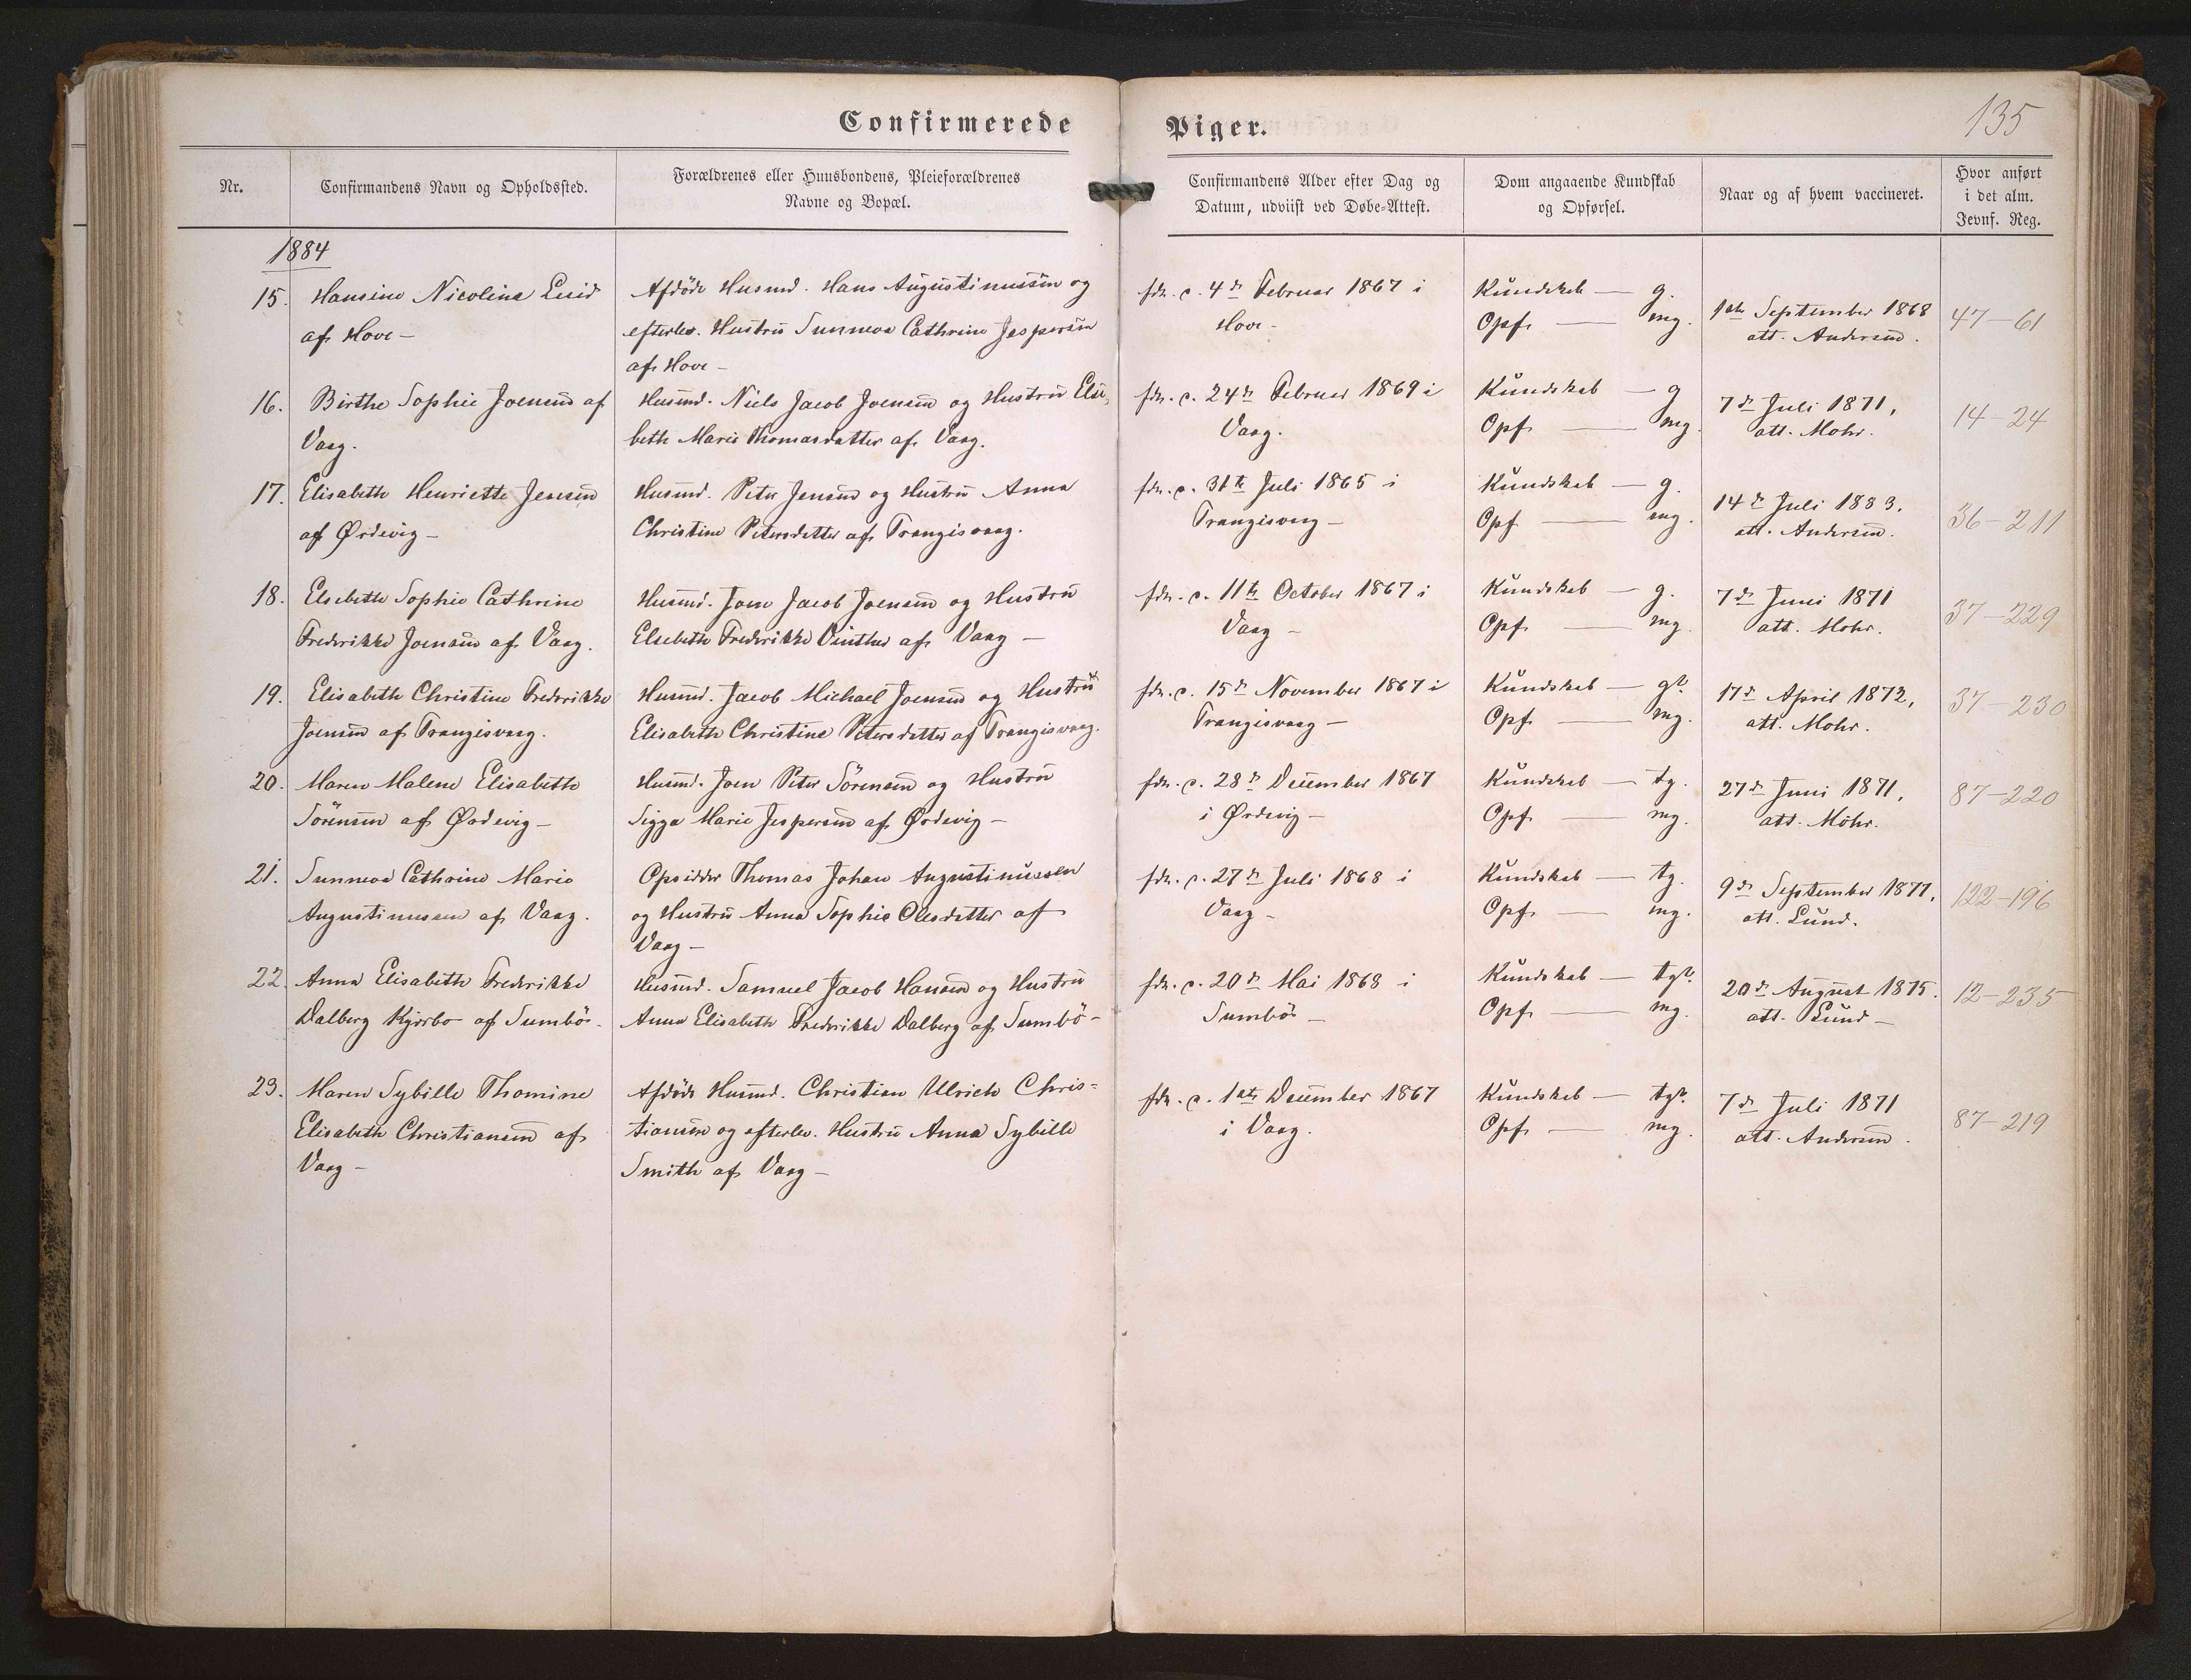 Confirmerede Piger.
135
Nr.
Confirmandens Navn og Opholdssted.
Forældrenes eller Huusbondens, Pleieforældrenes
Navne og Bopæl.
Confirmandens Alder efter Dag og
Datum, udviist ved Døbe-Attest.
Dom angaaende Kundskab
og Opførsel.
Naar og af hvem vaccineret.
Hvor anført
i det alm.
Jevnf. Reg.
1884
15.
Hansine Nicoline
af Hove -
Afdöde Husmd. Hans Augustinussen og
efterlev. Hustru Sunneva Cathrine Jespersen
af Hove -
fdr. c. 4de Februar 1867 i
Hove -
Kundskab — g.
Opf. — mg.
1ste September 1868
att. Andersen.
47-61
16.
Birthe Sophie Joensen af
Vaag.
Husmd. Niels Jacob Joensen og Hustru Elsebeth
Marie Thomasdatter af Vaag.
fdr. c. 24de Februar 1869 i
Vaag.
Kundskab — g
Opf. — mg.
7de Juli 1871,
att. Mohr.
14-24
17.
Elisabeth Henriette Jensen
af Ørdevig -
Husmd. Peter Jensen og Hustru Anna
Christine Petersdatter af Trangisvaag.
fdr. c. 31te Juli 1865 i
Trangisvaag -
Kundskab — g.
Opf — mg.
14de Juli 1883.
att. Andersen.
36-211
18.
Elsebeth Sophie Cathrine
Frederikke Joensen af Vaag.
Husmd. Joen Jacob Joensen og Hustru
Elsebeth Frederikke Vinther af Vaag —
fdr. c. 11te October 1867 i
Vaag -
Kundskab — g.
Opf. — mg.
7de Juni 1871
att. Mohr.
37-229
19.
Elisabeth Christine Frederikke
Joensen af Trangisvaag.
Husmd. Jacob Michael Joensen og Hustru
Elisabeth Christine Petersdatter af Trangisvaag.
fdr. c. 15de November 1867 i
Trangisvaag —
Kundskab — g?.
Opf. — mg.
17de April 1872,
att. Mohr.
37-230
20.
Maren Malene Elisabeth
Sörensen af Ørdevig -
Husmd. Joen Peter Sörensen og Hustru
Sigga Marie Jespersen af Ørdevig -
fdr. c. 28de December 1867
i Ørdevig -
Kundskab — tg.
Opf. — mg.
27de Juni 1871,
att. Mohr.
87-220
21.
Sunneva Cathrine Marie
Augustinussen af Vaag.
Opsidder Thomas Johan Augustinussen
og Hustru Anna Sophie Olesdatter af
Vaag -
fdr. c. 27de Juli 1868 i
Vaag -
Kundskab — tg.
Opf. — mg.
9de September 1877.
att. Lund.
122-196
22.
Anna Elisabeth Frederikke
Dalberg Kjerbo af Sumbö.
Husmd. Samuel Jacob Hansen og Hustru
Anna Elisabeth Frederikke Dalberg af Sumbö -
fdr. c. 20de Mai 1868 i
Sumbö -
Kundskab — tg?.
Opf. — mg.
20de August 1875.
att. Lund -
12-235
23.
Maren Sybille Thomine
Elisabeth Christiansen af
Vaag -
Afdöde Husmd. Christian Ulrich Chris=
tiansen og efterlev. Hustru Anna Sybille
Smith af Vaag -
fdr. c. 1ste December 1867
i Vaag.
Kundskab — tg?.
Opf. — mg.
7de Juli 1871
att. Andersen.
87-219